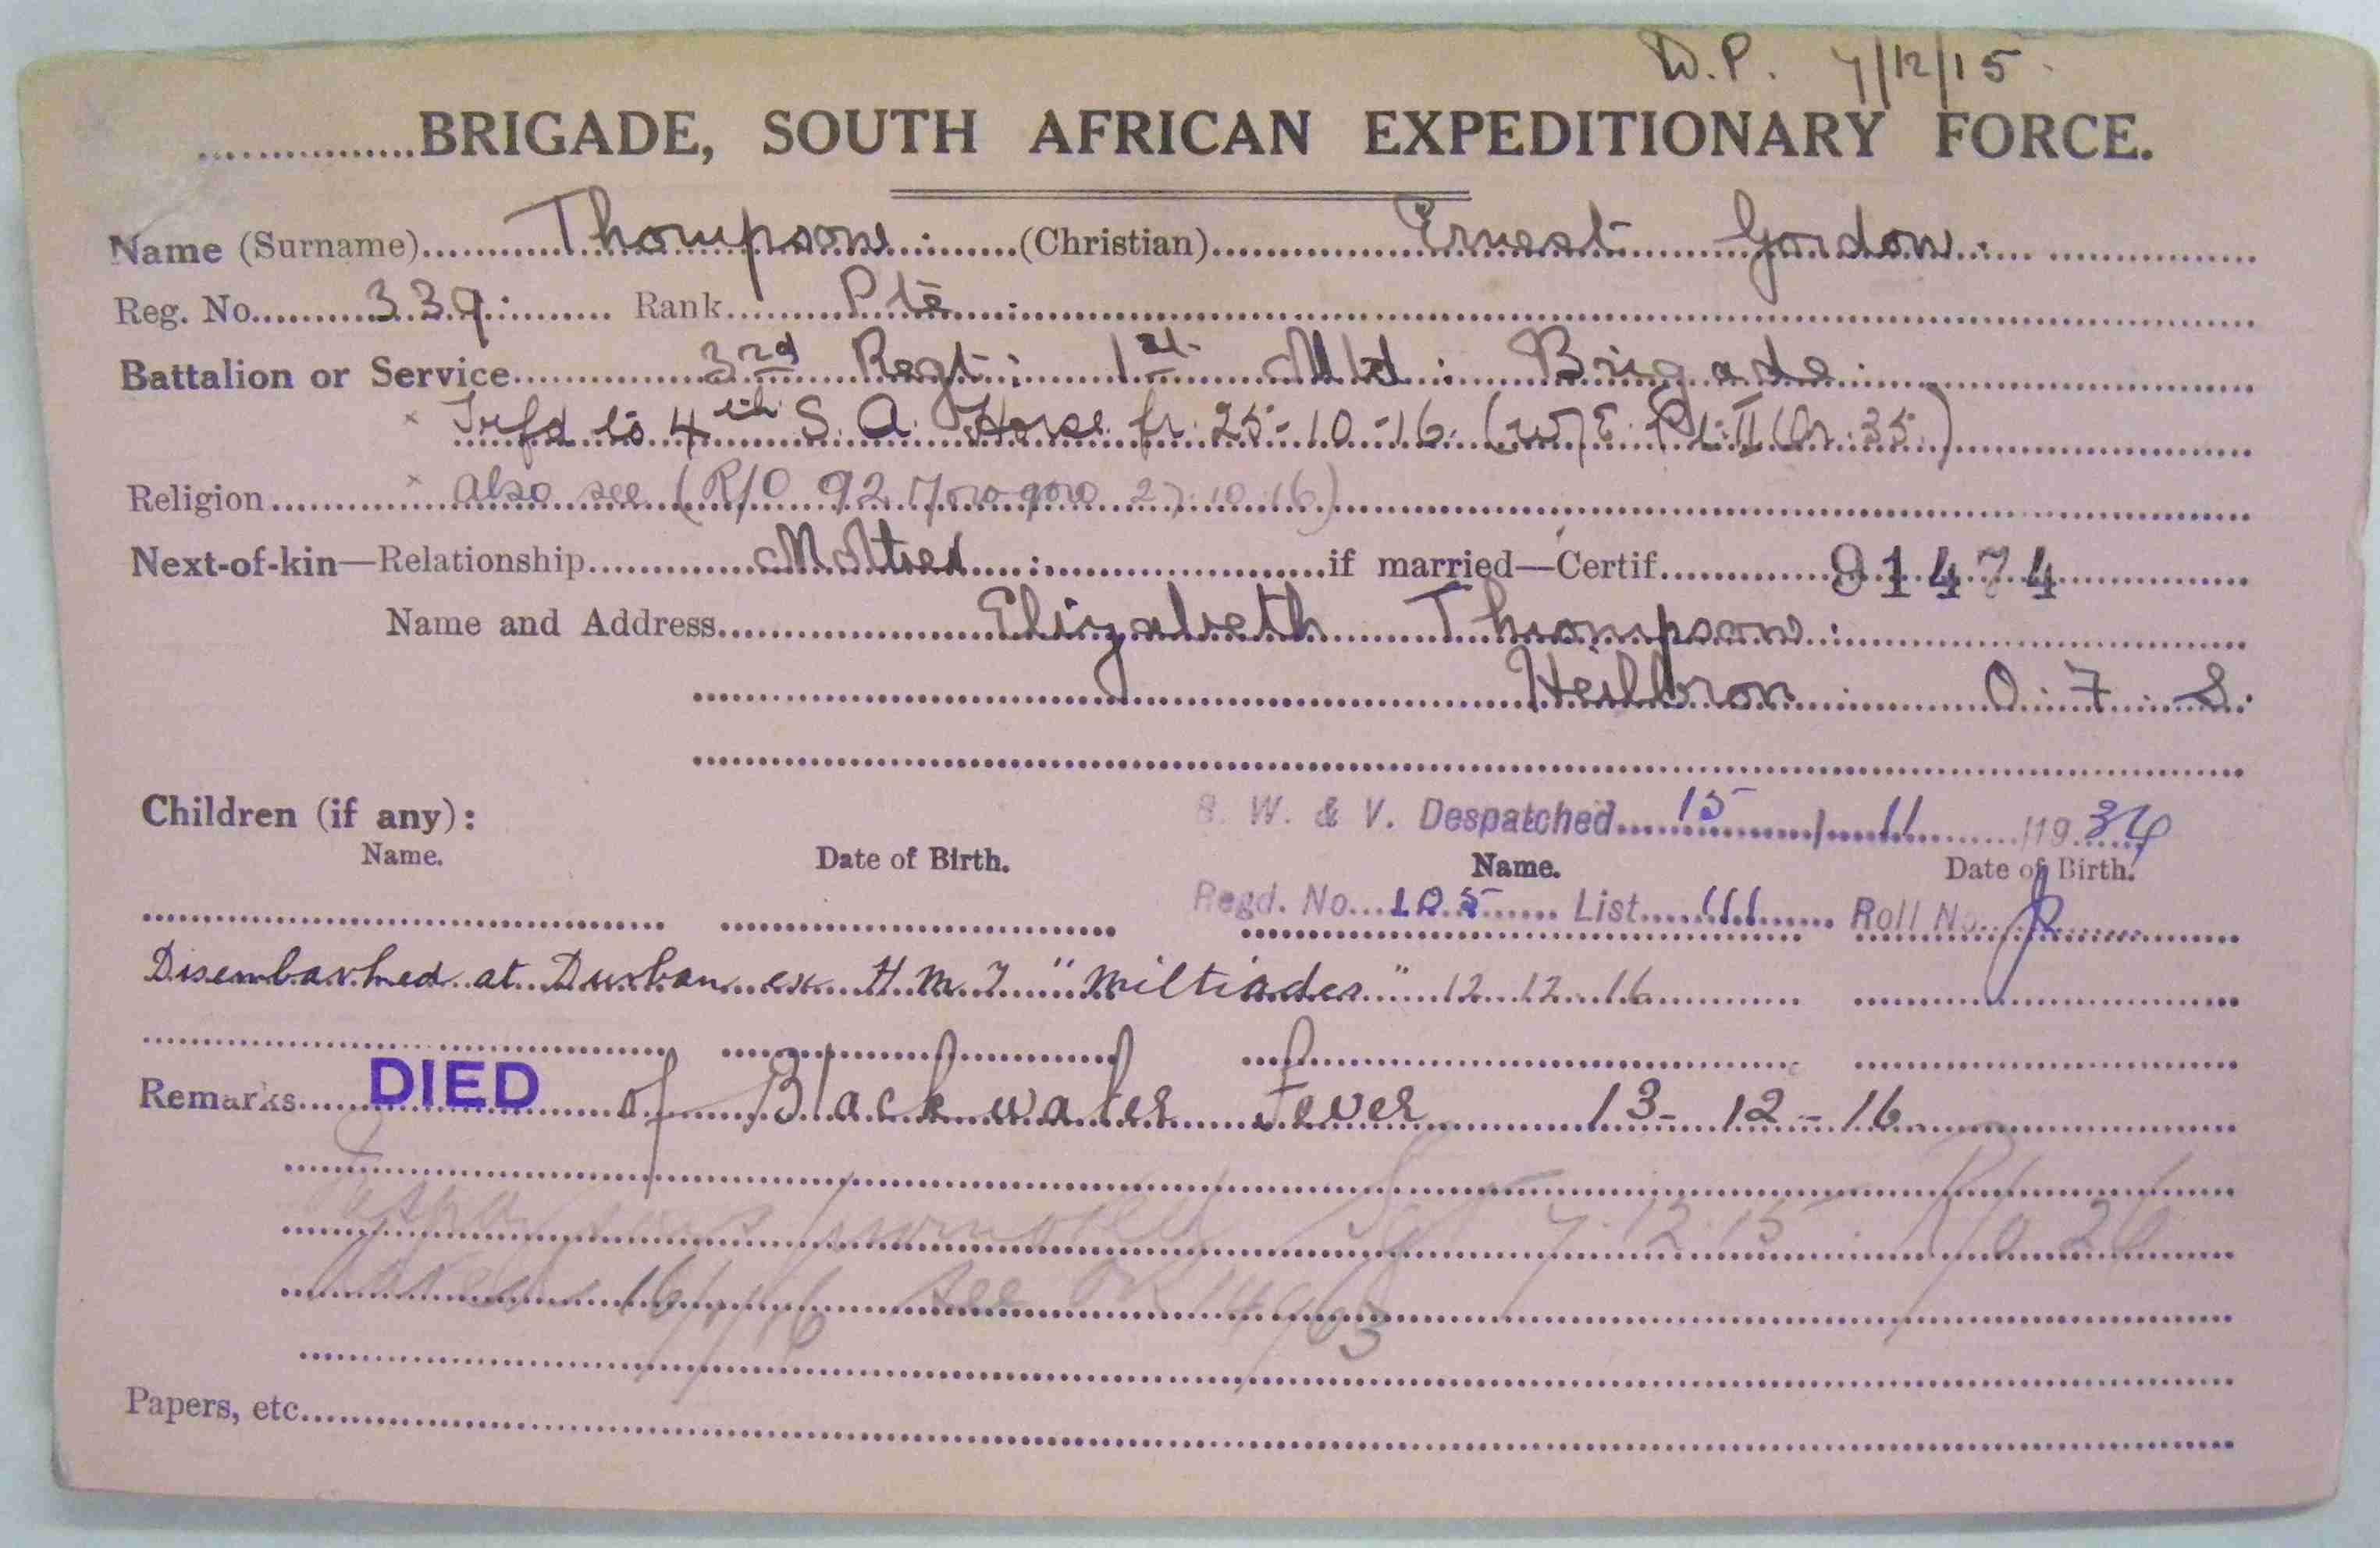 D.P. 7/12/15.
BRIGADE, SOUTH AFRICAN EXPEDITIONARY FORCE.
Name (Surname) Thompson : (Christian) Ernest Gordon :
Reg. No. 339 : Rank Pte :
Battalion or Service 3rd Regt : 1st Mtd : Brigade :
x Trfd to 4th S. A. Horse fr. 25-10-16. (W/E Pt II Or. 35.)
Religion x also see (R/O 92 Morogoro 27.10.16)
Next-of-kin—Relationship Mother : if married—Certif. 91474
Name and Address Elizabeth Thompson :
Heilbron : O : F : S.
Children (if any):
B. W. & V. Despatched 15 / 11 /19 34
Name. Date of Birth. Name. Date of Birth.
Regd. No. 105 List 111 Roll No.
Disembarked at Durban ex H.M.T. "Miltiades" 12.12.16
Remarks DIED of Blackwater Fever 13-12-16
7.12.15 R/O 26
16/1/16 see 14903
Papers, etc.